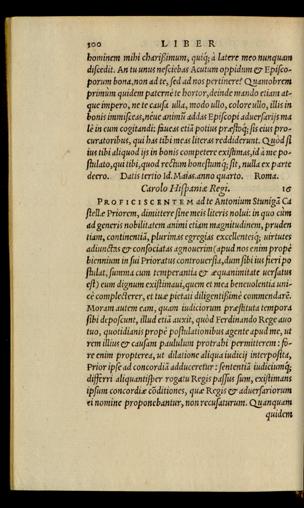 300 LIBER
hominem mihi charißimum, quiq́; à latere meo nunquam
discedit. An tu unus nesciebas Acutum oppidum & Episco-
porum bona, non ad te, sed ad nos pertinere? Quamobrem
primùm quidem paternè te hortor, deinde mando etiam at-
que impero, ne te causa ulla, modo ullo, colore ullo, illis in
bonis immisceas, néue animũ addas Episcopi aduersarijs ma
lè in eum cogitandi: siue as etiã potius præstoq́; sis eius pro-
curatoribus, qui has tibi meas literas reddiderunt. Quòd si
ius tibi aliquod ijs in bonis competere existimas, id à me po-
stulato, qui tibi, quod rectum honestumq́; sit, nulla ex parte
deero. Datis tertio Id. Maias. anno quarto. Roma.
Carolo Hispaniæ Regi. 16
PROFICISCENTEM ad te Antonium Stunigã Ca
stellæ Priorem, dimittere sine meis literis nolui: in quo cum
ad generis nobilitatem animi etiam magnitudinem, pruden
tiam, continentiã, plurimas egregias excellenteiq́; uirtutes
adiunctas & consociatas agnouerim (apud nos enim propè
biennium in sui Prioratus controuersia, dum sibi ius fieri po
stulat, summa cum temperantia & æquanimitate uersatus
est) eum dignum existimaui, quem et mea beneuolentia uni-
cè complecterer, et tuæ pietati diligentißimè commendarē.
Moram autem eam, quam iudiciorum præstituta tempora
sibi deposcunt, illud etiã auxit, quòd Ferdinando Rege auo
tuo, quotidianis propè postulationibus agente apud me, ut
rem illius & causam paululum protrahi permitterem: fo-
re enim propterea, ut dilatione aliqua iudicij interposita,
Prior ipse ad concordiã adduceretur: sententiã iudiciumq́;
differri aliquantisper rogatu Regis passus sum, existimans
ipsum concordiæ cõditiones, quæ Regis & aduersariorum
ei nomine proponebantur, non recusaturum. Quanquam
quidem